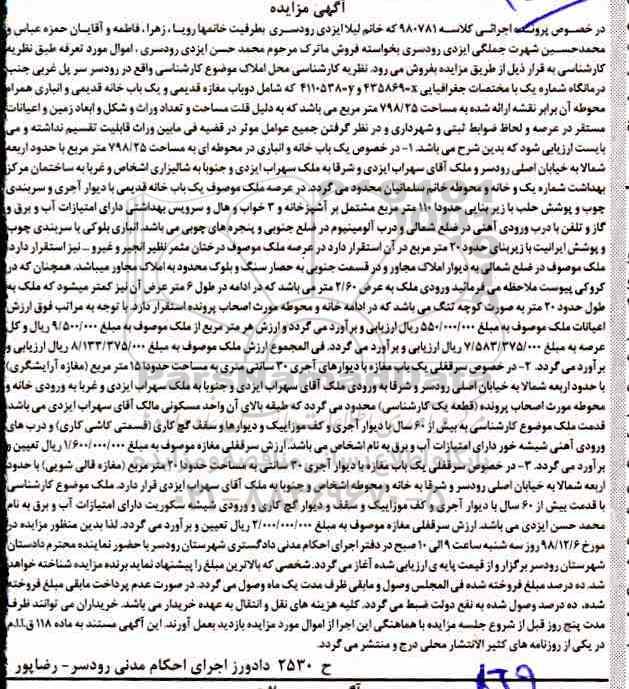 آگهی مزایده
در خصوص پرونده اجرائی کلاسه ۹۸۰۷۸۱ که خانم لیلا ایزدی رودسری بطرفیت خانمها رویا ، زهرا ، فاطمه و آقایان حمزه عباس و
محمدحسین شهرت جملگی ایزدی رودسری بخواسته فروش ماترک مرحوم محمد حسن ایزدی رودسری ، اموال مورد تعرفه طبق نظریه
کارشناسی به قرار ذیل از طریق مزایده بفروش می رود. نظریه کارشناسی محل املاک موضوع کارشناسی واقع در رودسر سر پل غربی جنب
درمانگاه شماره یک با مختصات جغرافیایی x=۴۳۵۸۶۹ و y=۴۱۱۰۵۳۸ که شامل دوباب مغازه قدیمی و یک باب خانه قدیمی و انباری همراه
محوطه آن برابر نقشه ارائه شده به مساحت ۷۹۸/۲۵ متر مربع می باشد که به دلیل قلت مساحت و تعداد وراث و شکل و ابعاد زمین و اعیانات
مستقر در عرصه و لحاظ ضوابط ثبتی و شهرداری و در نظر گرفتن جمیع عوامل موثر در قضیه فی مابین وراث قابلیت تقسیم نداشته و می
بایست ارزیابی شود که بدین شرح می باشد. ۱- در خصوص یک باب خانه و انباری در محوطه ای به مساحت ۷۹۸/۲۵ متر مربع با حدود اربعه
شمالا به خیابان اصلی رودسر و ملک آقای سهراب ایزدی و شرقا به ملک سهراب ایزدی و جنوبا به شالیزاری اشخاص و غربا به ساختمان مرکز
بهداشت شماره یک و خانه و محوطه خانم سلمانیان محدود می گردد. در عرصه ملک موصوف یک باب خانه قدیمی با دیوار آجری و سربندی
چوب و پوشش حلب با زیر بنایی حدودا ۱۱۰ متر مربع مشتمل بر آشپزخانه و ۳ خواب و هال و سرویس بهداشتی دارای امتیازات آب و برق و
گاز و تلفن با درب ورودی آهنی در ضلع شمالی و درب آلومینیوم در ضلع جنوبی و پنجره های چوبی می باشد. انباری بلوکی با سربندی چوب
و پوشش ایرانیت با زیربنای حدود ۲۰ متر مربع در آن استقرار دارد در عرصه ملک موصوف درختان مثمر نظیر انجیر و غیرو ... نیز استقرار دارد.
ملک موصوف در ضلع شمالی به دیوار املاک مجاور و در قسمت جنوبی به حصار سنگ و بلوک محدود به املاک مجاور میباشد. همچنان که در
کروکی پیوست ملاحظه می فرمائید ورودی ملک به عرض ۲/۶۰ متر می باشد که در ادامه در طول ۶ متر عرض آن نیز کمتر میشود که ملک به
طول حدود ۲۰ متر به صورت کوچه تنگ می باشد که در ادامه خانه و محوطه مورث اصحاب پرونده استقرار دارد. با توجه به مراتب فوق ارزش
اعیانات ملک موصوف به مبلغ ۵۵۰/۰۰۰/۰۰۰ ریال ارزیابی و برآورد می گردد و ارزش هر متر مربع از ملک موصوف به مبلغ ۹/۵۰۰/۰۰۰ ریال و کل
عرصه به مبلغ ۷/۵۸۳/۳۷۵/۰۰۰ ریال ارزیابی و برآورد می گردد. فی المجموع ارزش ملک موصوف به مبلغ ۸/۱۳۳/۳۷۵/۰۰۰ ریال ارزیابی و
برآورد می گردد. ۲- در خصوص سرقفلی یک باب مغازه با دیوارهای آجری ۳۰ سانتی متری به مساحت حدودا ۱۵ متر مربع (مغازه آرایشگری)
با حدود اربعه شمالا به خیابان اصلی رودسر و شرقا به ورودی ملک آقای سهراب ایزدی و جنوبا به ملک سهراب ایزدی و غربا به ورودی خانه و
محوطه مورث اصحاب پرونده (قطعه یک کارشناسی) محدود می گردد که طبقه بالای آن واحد مسکونی مالک آقای سهراب ایزدی می باشد.
قدمت ملک موضوع کارشناسی به بیش از ۶۰ سال با دیوار آجری و کف موزاییک و دیوارها و سقف گچ کاری (قسمتی کاشی کاری) و درب های
ورودی آهنی شیشه خور دارای امتیازات آب و برق به نام اشخاص می باشد. ارزش سرقفلی مغازه موصوف به مبلغ ۱/۶۰۰/۰۰۰/۰۰۰ ریال تعیین و
برآورد می گردد. ۳- در خصوص سرقفلی یک باب مغازه با دیوار آجری ۳۰ سانتی به مساحت حدودا ۲۰ متر مربع (مغازه قالی شویی) با حدود
اربعه شمالا به خیابان اصلی رودسر و شرقا به خانه و محوطه اشخاص و جنوبا به ملک آقای سهراب ایزدی قرار دارد. ملک موضوع کارشناسی
با قدمت بیش از ۶۰ سال با دیوار آجری و کف موزاییک و سقف و دیوار گچ کاری و ورودی شیشه سکوریت دارای امتیازات آب و برق به نام
محمد حسن ایزدی می باشد. ارزش سرقفلی مغازه موصوف به مبلغ ۲/۰۰۰/۰۰۰/۰۰۰ ریال تعیین و برآورد می گردد. لذا بدین منظور مزایده در
مورخ ۹۸/۱۲/۶ روز سه شنبه ساعت ۹ الی ۱۰ صبح در دفتر اجرای احکام مدنی دادگستری شهرستان رودسر با حضور نماینده محترم دادستان
شهرستان رودسر برگزار و از قیمت پایه ی ارزیابی شده آغاز می گردد. شخصی که بالاترین مبلغ را پیشنهاد نماید برنده مزایده شناخته خواهد
شد. ده درصد مبلغ فروخته شده فی المجلس وصول و مابقی ظرف مدت یک ماه وصول می گردد. در صورت عدم پرداخت مابقی مبلغ فروخته
شده، ده درصد وصول شده به نفع دولت ضبط می گردد. کلیه هزینه های نقل و انتقال به عهده خریدار می باشد. خریداران می توانند ظرف
مدت پنج روز قبل از شروع جلسه مزایده با هماهنگی این اجرا از اموال مورد مزایده بازدید بعمل آورند. این آگهی مستند به ماده ۱۱۸ ق.ا.ا.م
در یکی از روزنامه های کثیر الانتشار محلی درج و منتشر می گردد.
ح ۲۵۳۰ دادورز اجرای احکام مدنی رودسر - رضاپور